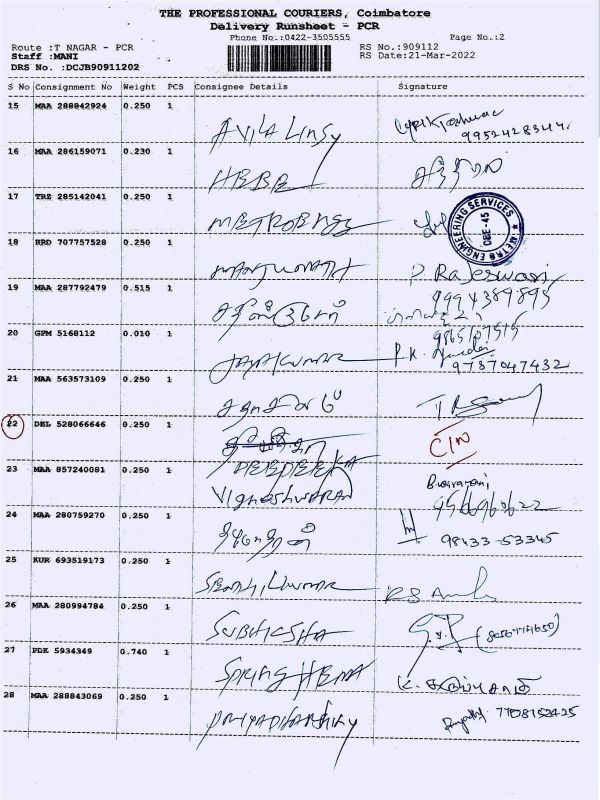 THE PROFESSIONAL COURIERS, Coimbatore
Delivery Runsheet - PCR
Phone No.:0422-3505555
Page No.:2
Route :T NAGAR - PCR
RS No.:909112
Staff :MANI
RS Date:21-Mar-2022
DRS No. :DCJB90911202
S No Consignment No Weight PCS Consignee Details Signature
15 MAA 288842924 0.250 1
AVILA LINSY
9952428344
16 MAA 286159071 0.230 1
HEBE
17 TRZ 285142041 0.250 1
METROENGG
METRO ENGINEERING SERVICES
CBE-45
18 BRD 707757528 0.250 1
MANJUNATH
P. Rajeswari
19 MAA 287792479 0.515 1
9994389895
20 GPM 5168112 0.010 1
JAYAKUMAR
9865107515
P.K.
9787047432
21 MAA 563573109 0.250 1
22 DEL 528066646 0.250 1
DEEPEEKA
CIN
23 MAA 857240081 0.250 1
VIGNESHWARAN
9566960622
24 MAA 280759270 0.250 1
98433-53345
25 KUR 693519173 0.250 1
SENTHILKUMAR
26 MAA 280994784 0.250 1
SUBHIKSHA
27 PDK 5934349 0.740 1
SPRING HEMA
28 MAA 288843069 0.250 1
PRIYADHARSHINY
7708152425